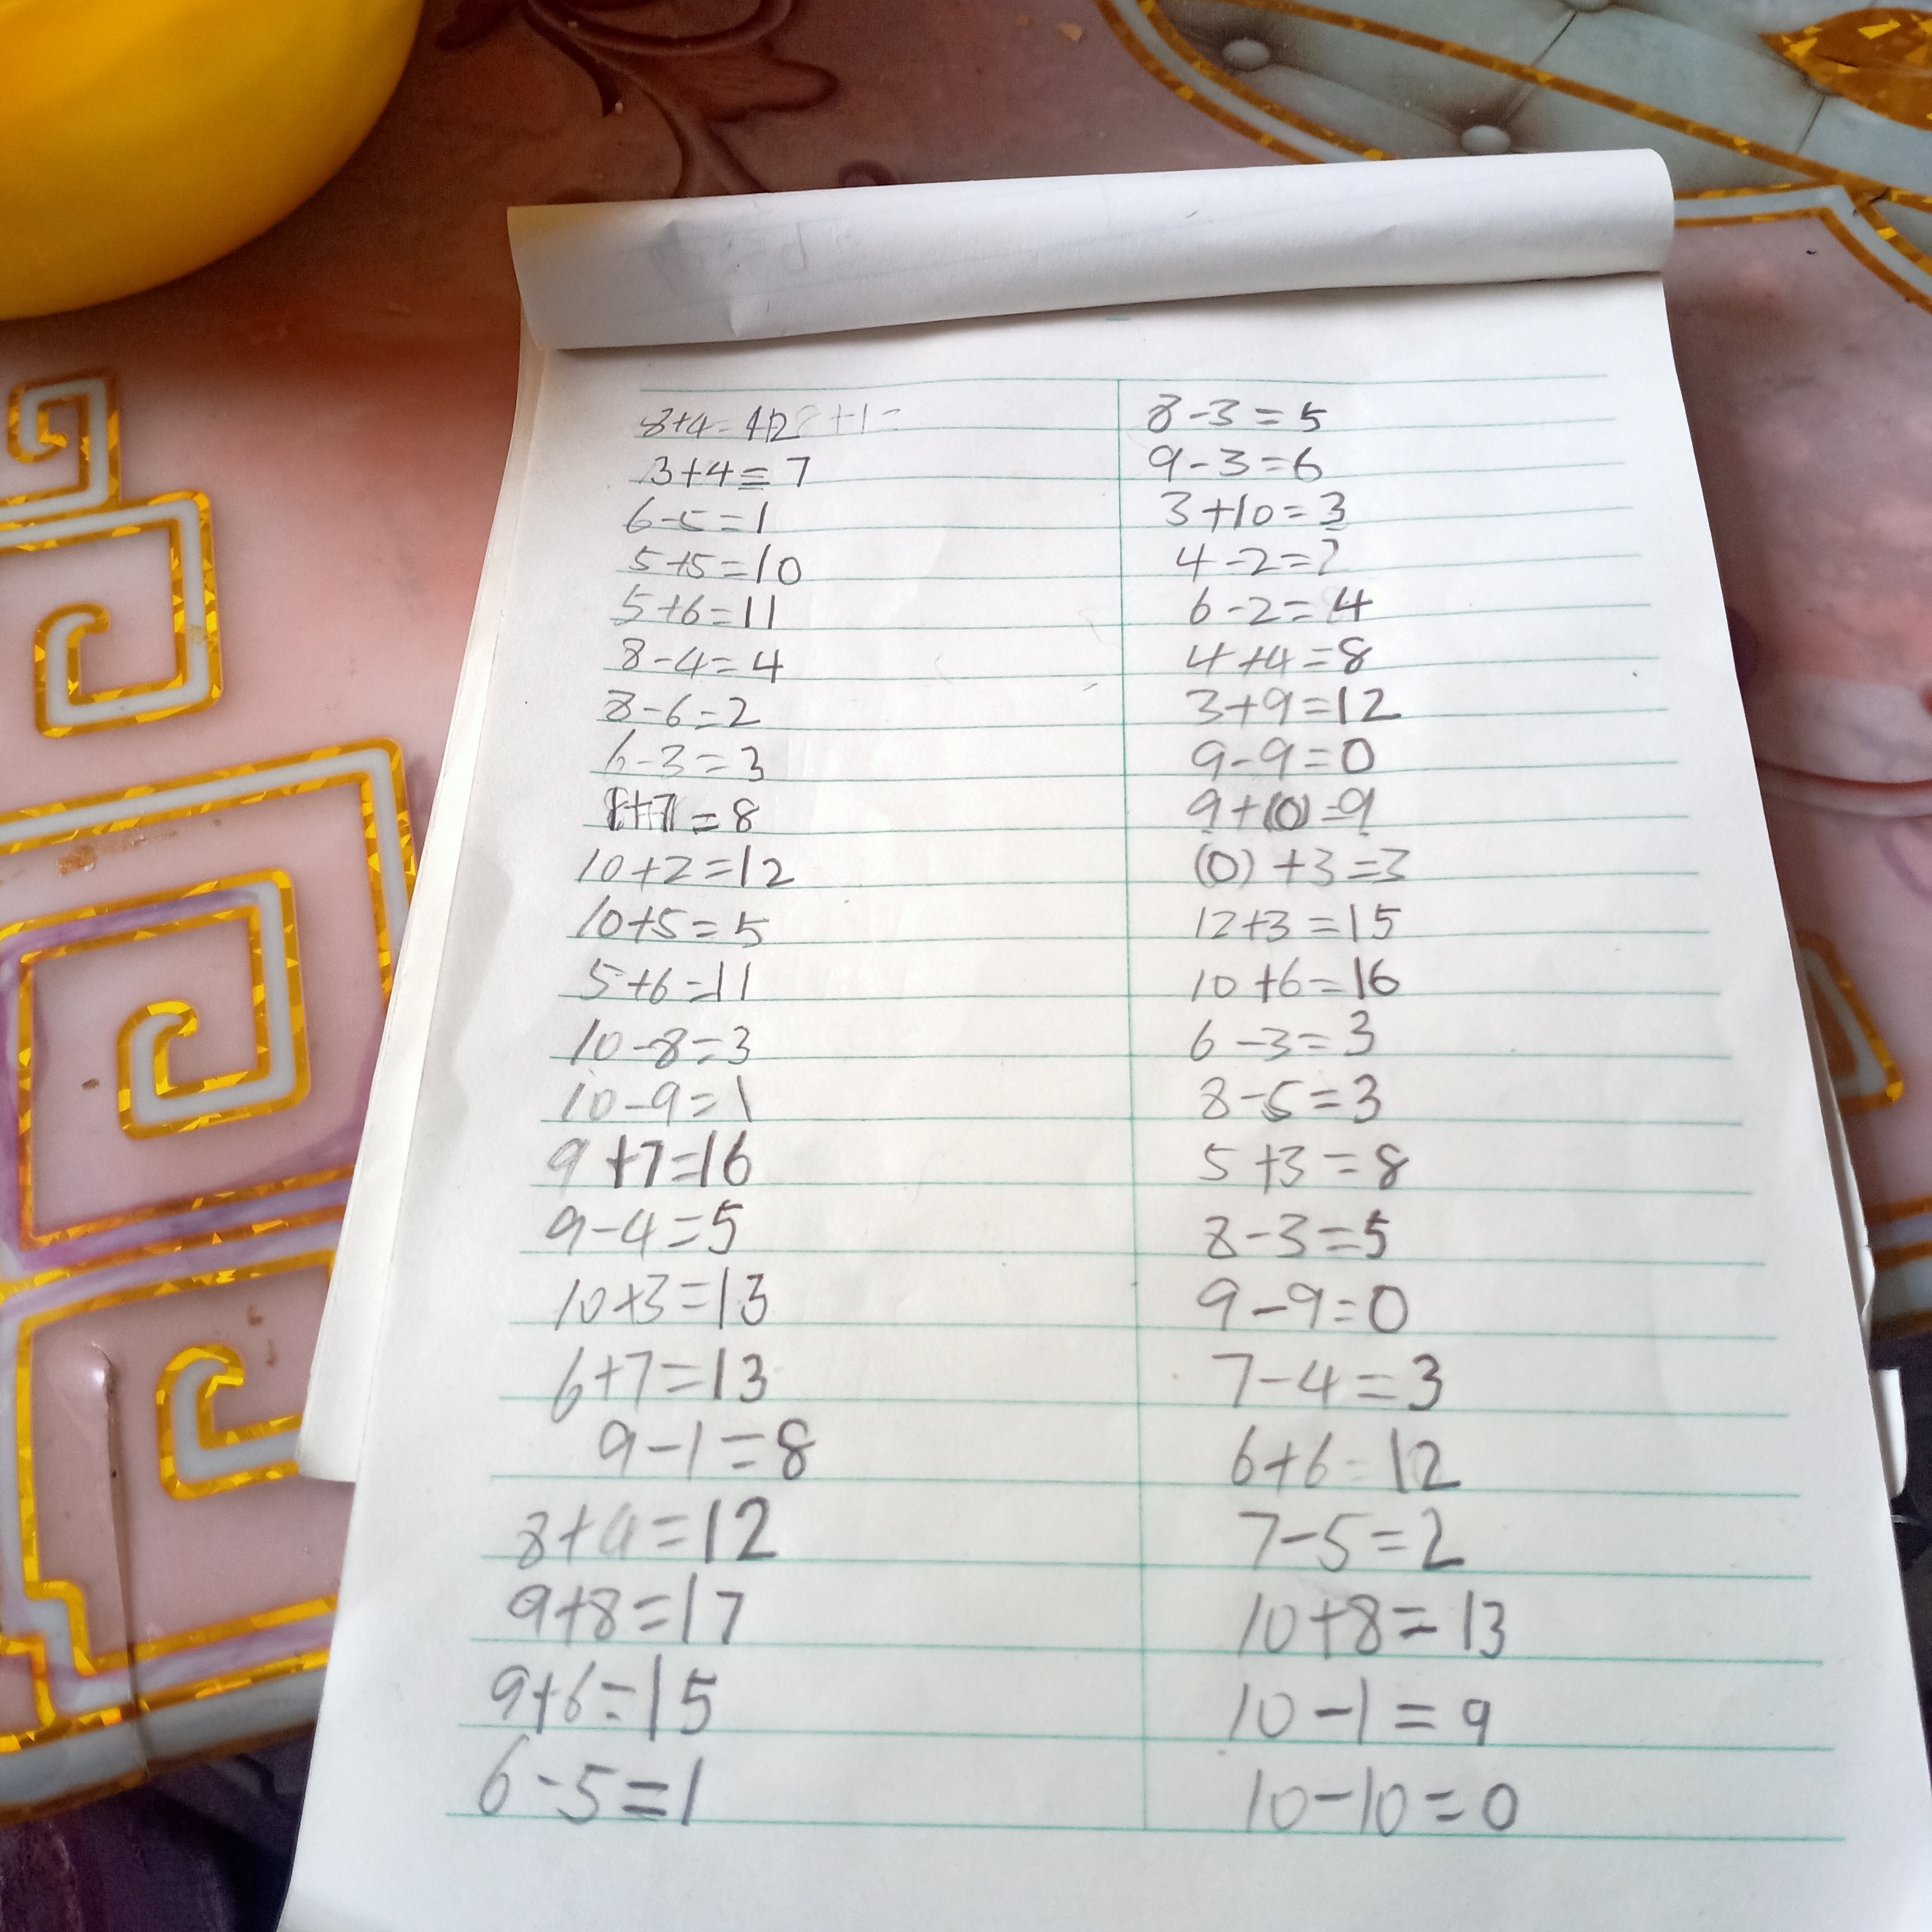 8+4=12
3+4=7
6-5=1
5+5=10
5+6=11
8-4=4
8-6=2
6-3=3
1+7=8
10+2=12
10+5=5
5+6=11
10-8=3
10-9=1
9+7=16
9-4=5
10+3=13
6+7=13
9-1=8
8+4=12
9+8=17
9+6=15
6-5=1
8-3=5
9-3=6
3+10=3
4-2=2
6-2=4
4+4=8
3+9=12
9-9=0
9+(0)=9
(0)+3=3
12+3=15
10+6=16
6-3=3
8-5=3
5+3=8
8-3=5
9-9=0
7-4=3
6+6=12
7-5=2
10+8=13
10-1=9
10-10=0